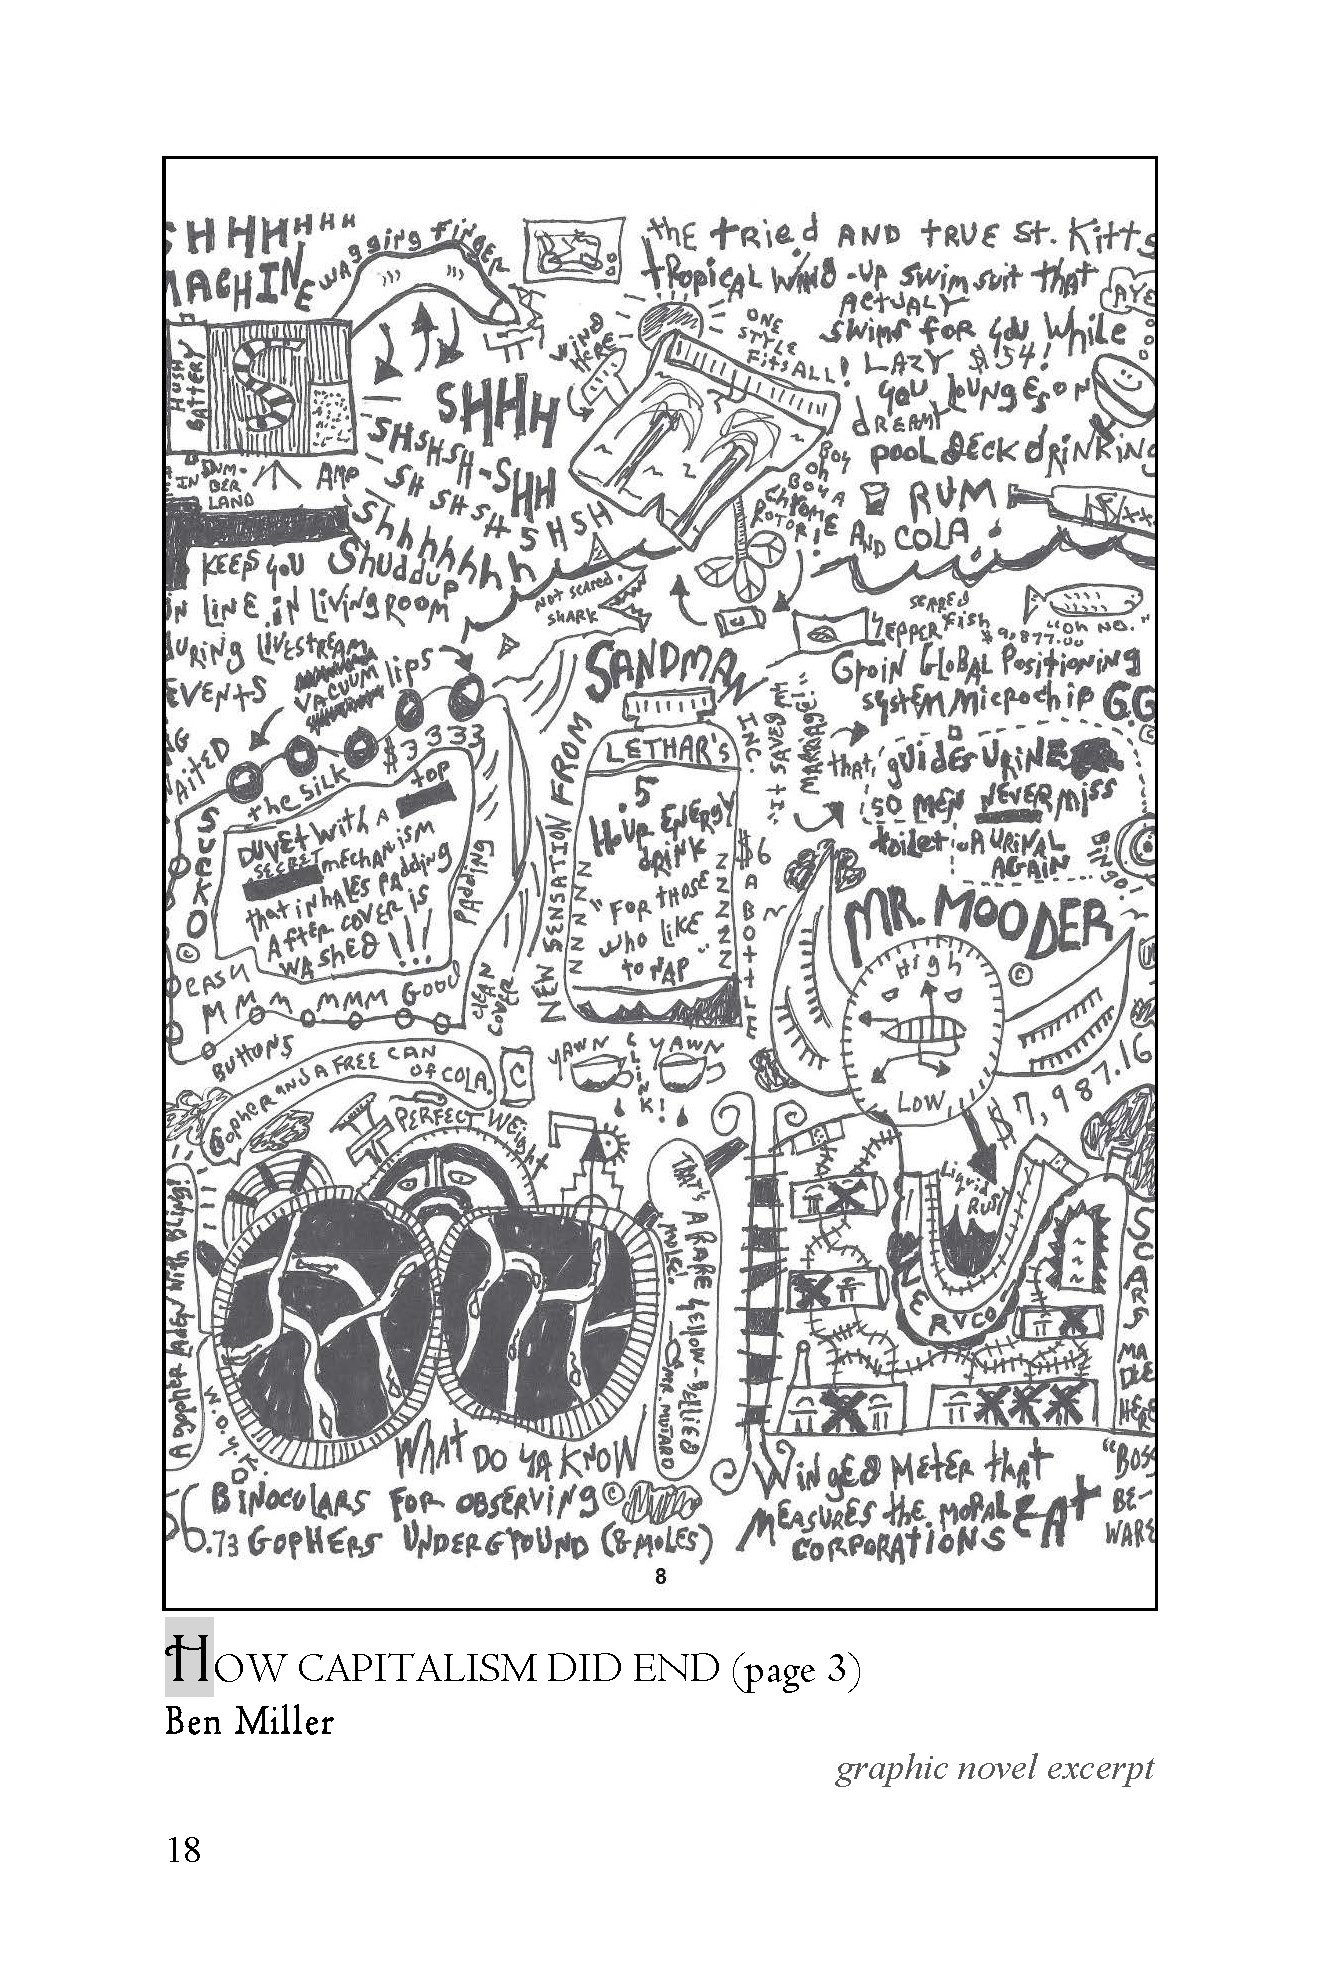 SHHHHHHH
MACHINE
WAGGING FINGER
HUSH
BATTERY
S
SHHH
SHSHSH-SHH
SH SH SH SHSH
Shhhhhhh
IN DUM-
BER
LAND
AMP
KEEPS YOU Shuddup
IN LINE IN LIVINGROOM
DURING LIVESTREAM
EVENTS
VACUUM
lips
the tRied AND tRUE St. Kitts
tRopicAL WIND-UP SWIMSUIT tHAt
ACTUALY
SWIMS FOR YOU While
LAZY $154!
YOU LOUNGES ON
dREAMY
POOL DECK dRINKING
RUM
AND COLA
WIND
HERE
ONE
STYLE
FitS ALL!
BOY
Oh
BOY A
CHROME
ROTOR!
NOT SCARED.
SHARK
C
ZEPPER
SCARED
FISH
"OH NO."
$9,877.00
GROIN GLOBAL POSITIONING
SYSTEM MICROCHIP G.G
that guides URINE
SO MEN NEVER MISS
toilet OR URINAL
AGAIN
BINGO!
"It SAVED MY
MARRIAGE!"
$3333
SUCKO
©
the SILK
DUVET With A top
SECRET MECHANISM
that INHALES PADDING
AFTER COVER IS
WASHED!!!
PADDING
EASY
MMM MMM GOOD
BUTTONS
CLEAN
COVER
NEW SENSATION FROM
SANDMAN
INC.
LETHAR'S
.5
HOUR ENERGY
dRINK
"FOR THOSE
WHO LIKE
TO NAP"
$6
A
BOTTLE
YAWN CLINK! YAWN
MR. MOODER
©
HIGH
LOW
$7,987.16
Liquid
RUST
RVCO
SCARS
MADE
HERE
GOPHER AND A FREE CAN
OF COLA.
C
PERFECT WEIGHT
A GOPHER LADEN WITH BLING!
W.D.Y.K.
THAT'S A RARE YELLOW-BELLIED
MOLE!
MR. MUTARD
WHAT DO YA KNOW
BINOCULARS FOR OBSERVING ©
56.73 GOPHERS UNDERGROUND (& MOLES)
WINGED METER that
MEASURES tHE MORAL
CORPORATIONS EAT
"BOSS
BE-
WARE
8
HOW CAPITALISM DID END (page 3)
Ben Miller
graphic novel excerpt
18